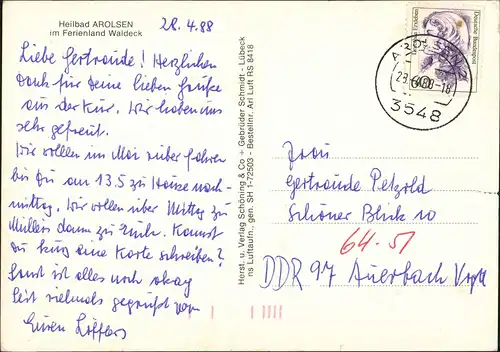 Heilbad AROLSEN
im Ferienland Waldeck
28.4.88
Liebe Gertraude! Herzlichen
Dank für Deine lieben Grüße
aus der Kur. Wir haben uns
sehr gefreut.
Wir wollen im Mai rüber fahren
bis Du am 13.5 zu Hause nach-
mittag. Wir wollen über Mittag zu
Müllers dann zu Kannst
Du kurz eine Karte schreiben?
Sonst ist alles noch okay
Seit vielmals gegrüßt von
Euren Löfflers
Herst. u. Verlag Schöning & Co + Gebrüder Schmidt - Lübeck
ns Luftaufn., gen. SH 1-72503 - Bestellnr. Arl Luft RS 8418
Deutsche Bundespost
60
AROLSEN
3548
Frau
Gertraude Petzold
Schöner Blick 10
64-51
DDR 97 Auerbach Vogtl